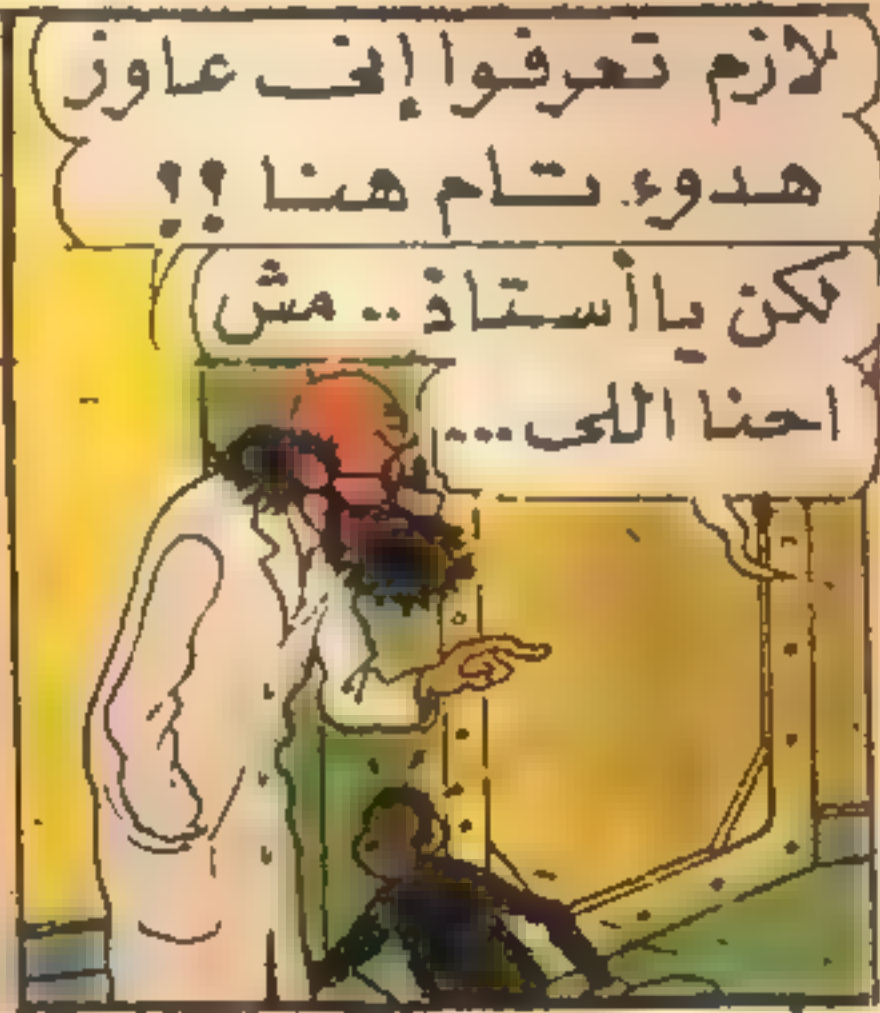 لازم تعرفوا إنى عاوز
هدوء تام هنا !!
لكن يا أستاذ .. مش
احنا اللى ...